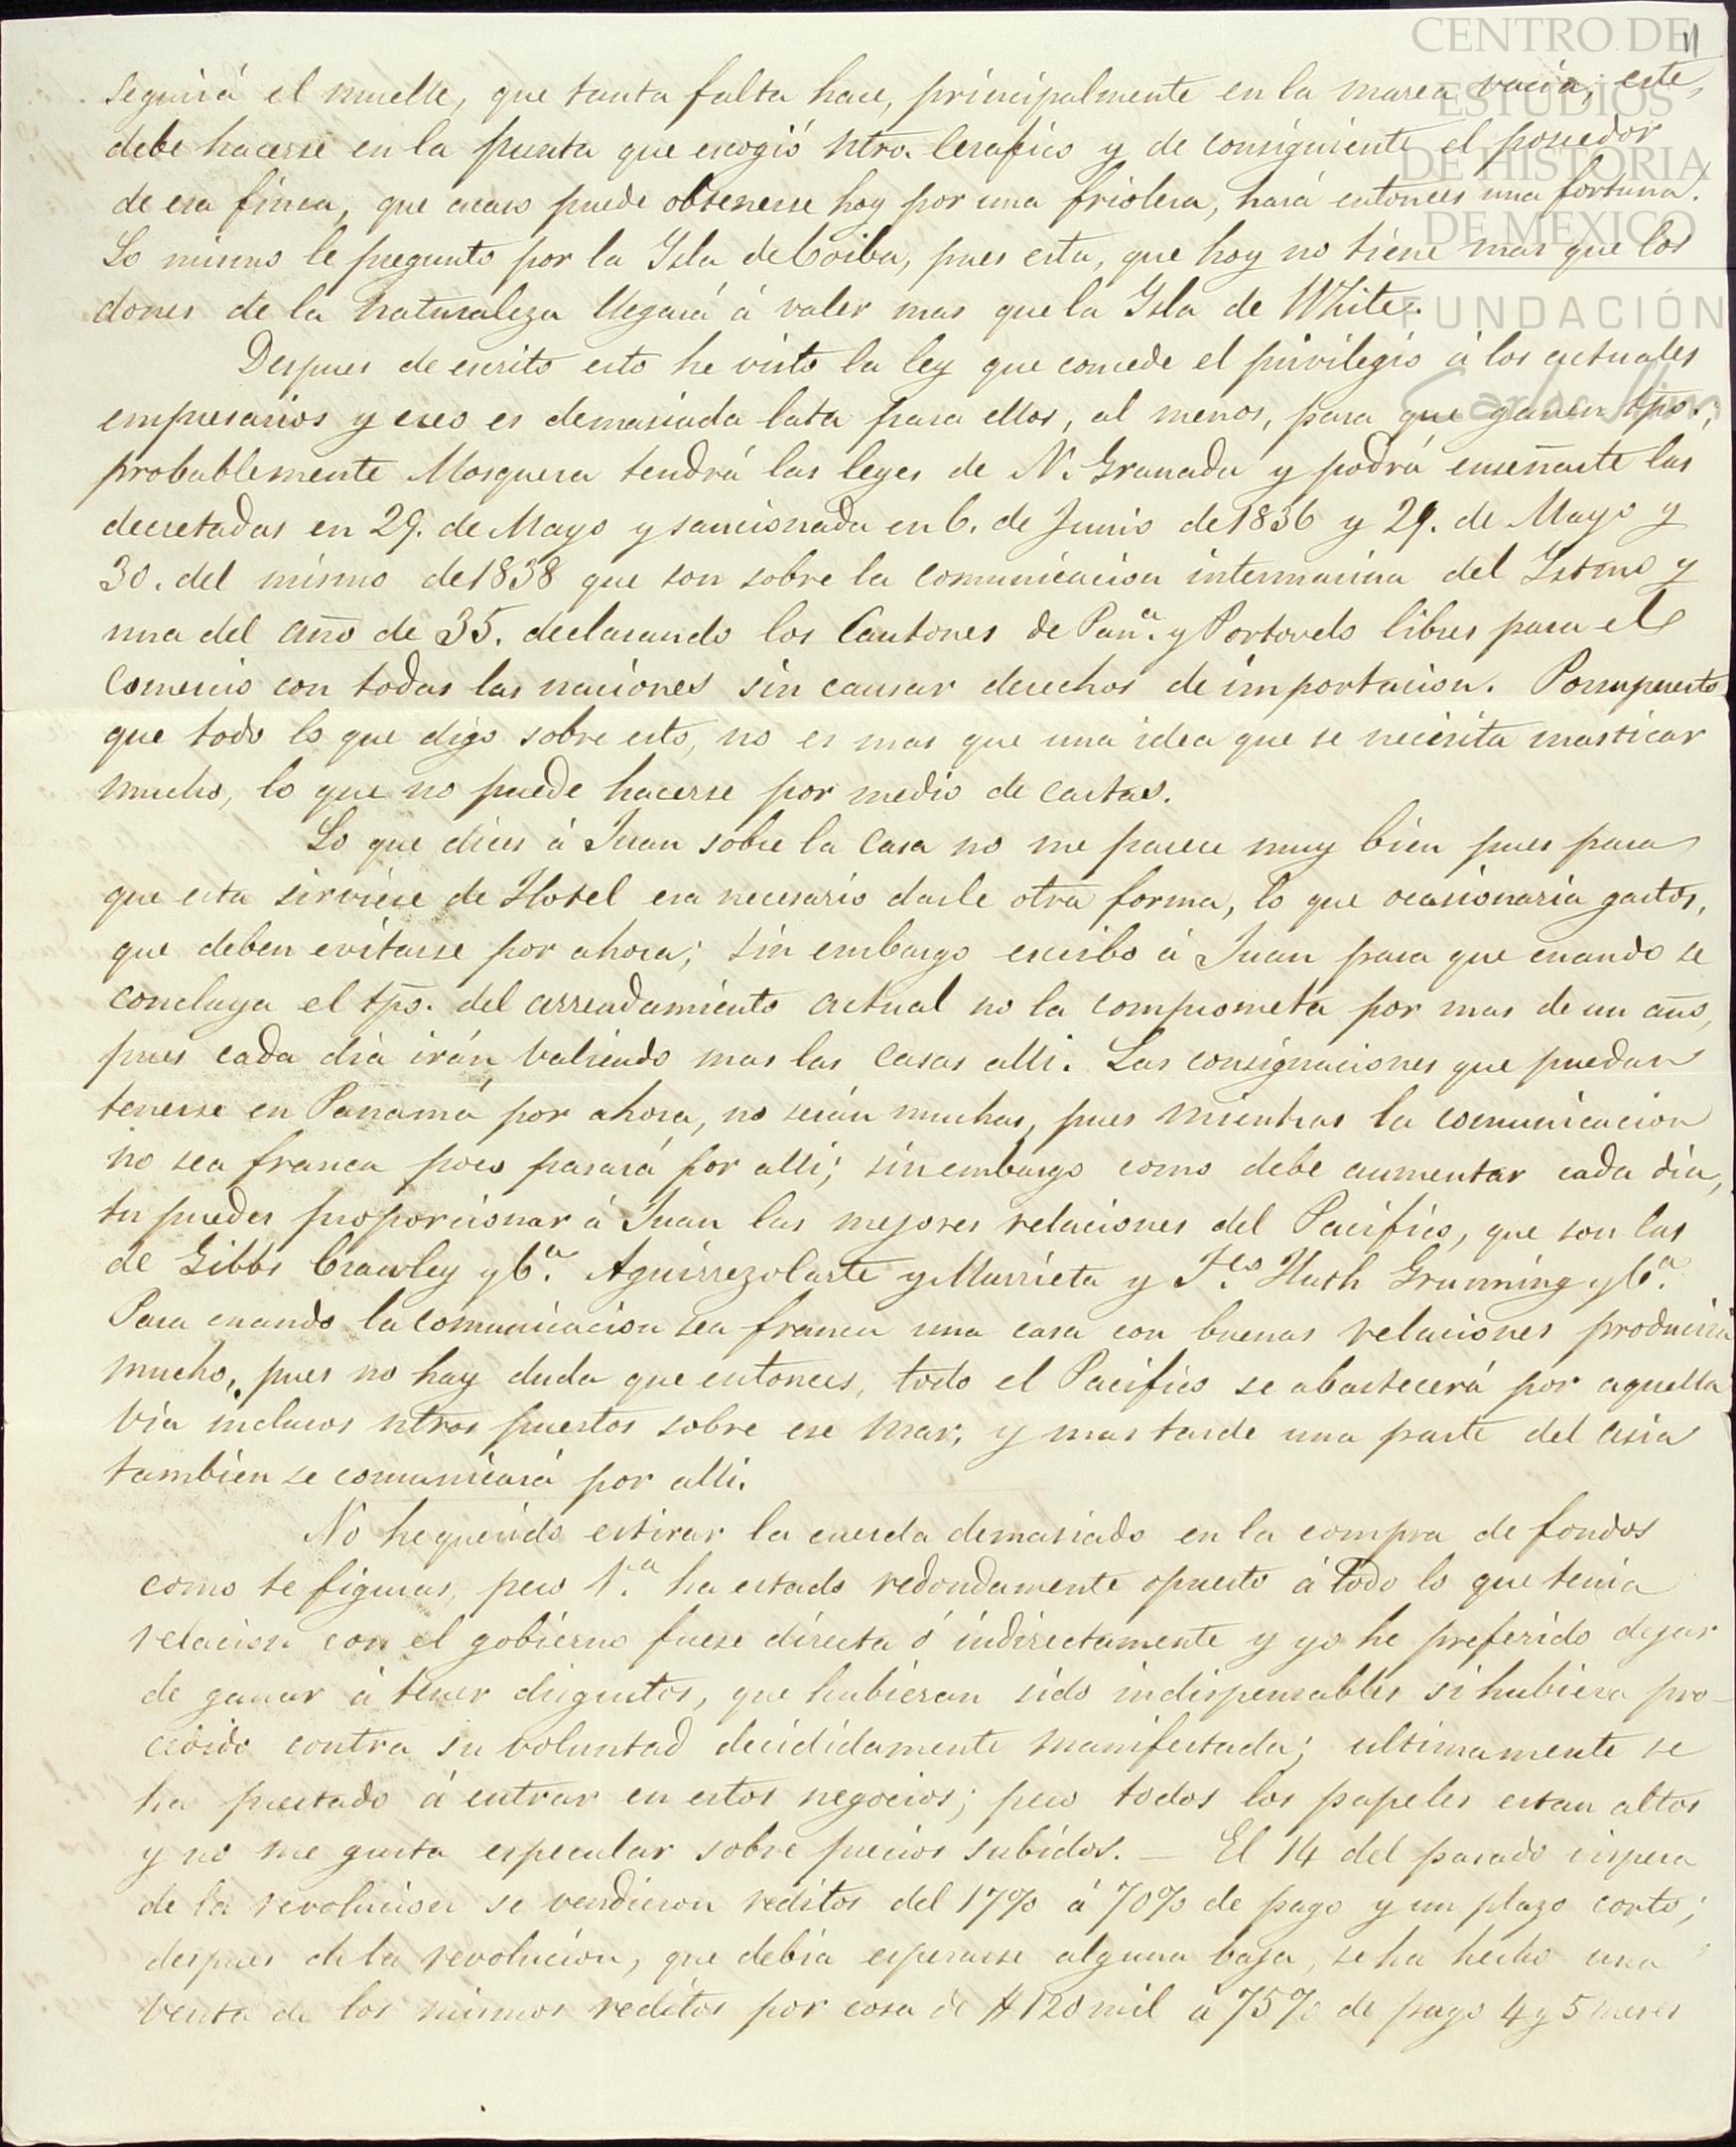 CENTRO DE
ESTUDIOS
DE HISTORIA
DE MEXICO
FUNDACIÓN
Carlos Slim
11
seguirá el muelle, que tanta falta hace, principalmente en la marea vacia; este,
debe hacerse en la punta que escogió ntro. Cerafico y de consiguiente el poseedor
de esa finca, que acaso puede obtenerse hoy por una friolera, hará entonces una fortuna.
Lo mismo le pregunto por la Isla de Coiba, pues esta, que hoy no tiene mas que los
dones de la naturaleza llegará á valer mas que la Isla de White.
Despues de escrito esto he visto la ley que concede el privilegio á los actuales
empresarios y creo es demasiada lata para ellos, al menos, para que ganen tpō.,
probablemente Mosquera tendrá las leyes de N. Granada y podrá enseñarte las
decretadas en 29. de Mayo y sancionada en 6. de Junio de 1836 y 29. de Mayo y
30. del mismo de 1838 que son sobre la comunicacion intermarina del Istmo y
una del año de 35. declarando los Cantones de Panª. y Portovelo libres para el
Comercio con todas las naciones sin causar derechos de importacion. Porsupuesto
que todo lo que digo sobre esto, no es mas que una idea que se necesita masticar
mucho, lo que no puede hacerse por medio de cartas.
Lo que dices á Juan sobre la Casa no me parece muy bien pues para
que esta sirviese de Hotel era necesario darle otra forma, lo que ocasionaria gastos,
que deben evitarse por ahora; sin embargo escribo á Juan para que cuando se
concluya el tpō. del arrendamiento actual no la comprometa por mas de un año,
pues cada dia irán valiendo mas las Casas alli. Las consignaciones que puedan
tenerse en Panamá por ahora, no serán muchas, pues mientras la comunicacion
no sea franca poco pasará por alli; sin embargo como debe aumentar cada dia,
tu puedes proporcionar á Juan las mejores relaciones del Pacifico, que son las
de Gibbs Crawley y Cª. Aguirrezolarte y Murrieta y Fco. Huth Grunning y Cª.
Para cuando la comunicacion sea franca una casa con buenas relaciones producirá
mucho, pues no hay duda que entonces, todo el Pacifico se abastecerá por aquella
via inclusos ntros puertos sobre ese mar, y mas tarde una parte del asia
tambien se comunicará por alli.
No he querido estirar la cuerda demasiado en la compra de fondos
como te figuras, pero 1.ª ha estado redondamente opuesto á todo lo que tenia
relacion con el gobierno fuese directa ó indirectamente y yo he preferido dejar
de ganar á tener disgustos, que hubieran sido indispensables si hubiera pro-
cedido contra su voluntad decididamente manifestada; ultimamente se
ha prestado á entrar en estos negocios; pero todos los papeles estan altos
y no me gusta especular sobre precios subidos. — El 14 del pasado vispera
de la revolucion se vendieron reditos del 17% á 70% de pago y un plazo corto;
despues de la revolucion, que debia esperarse alguna baja, se ha hecho una
venta de los mismos reditos por cosa de $120 mil á 75% de pago 4 y 5 meses